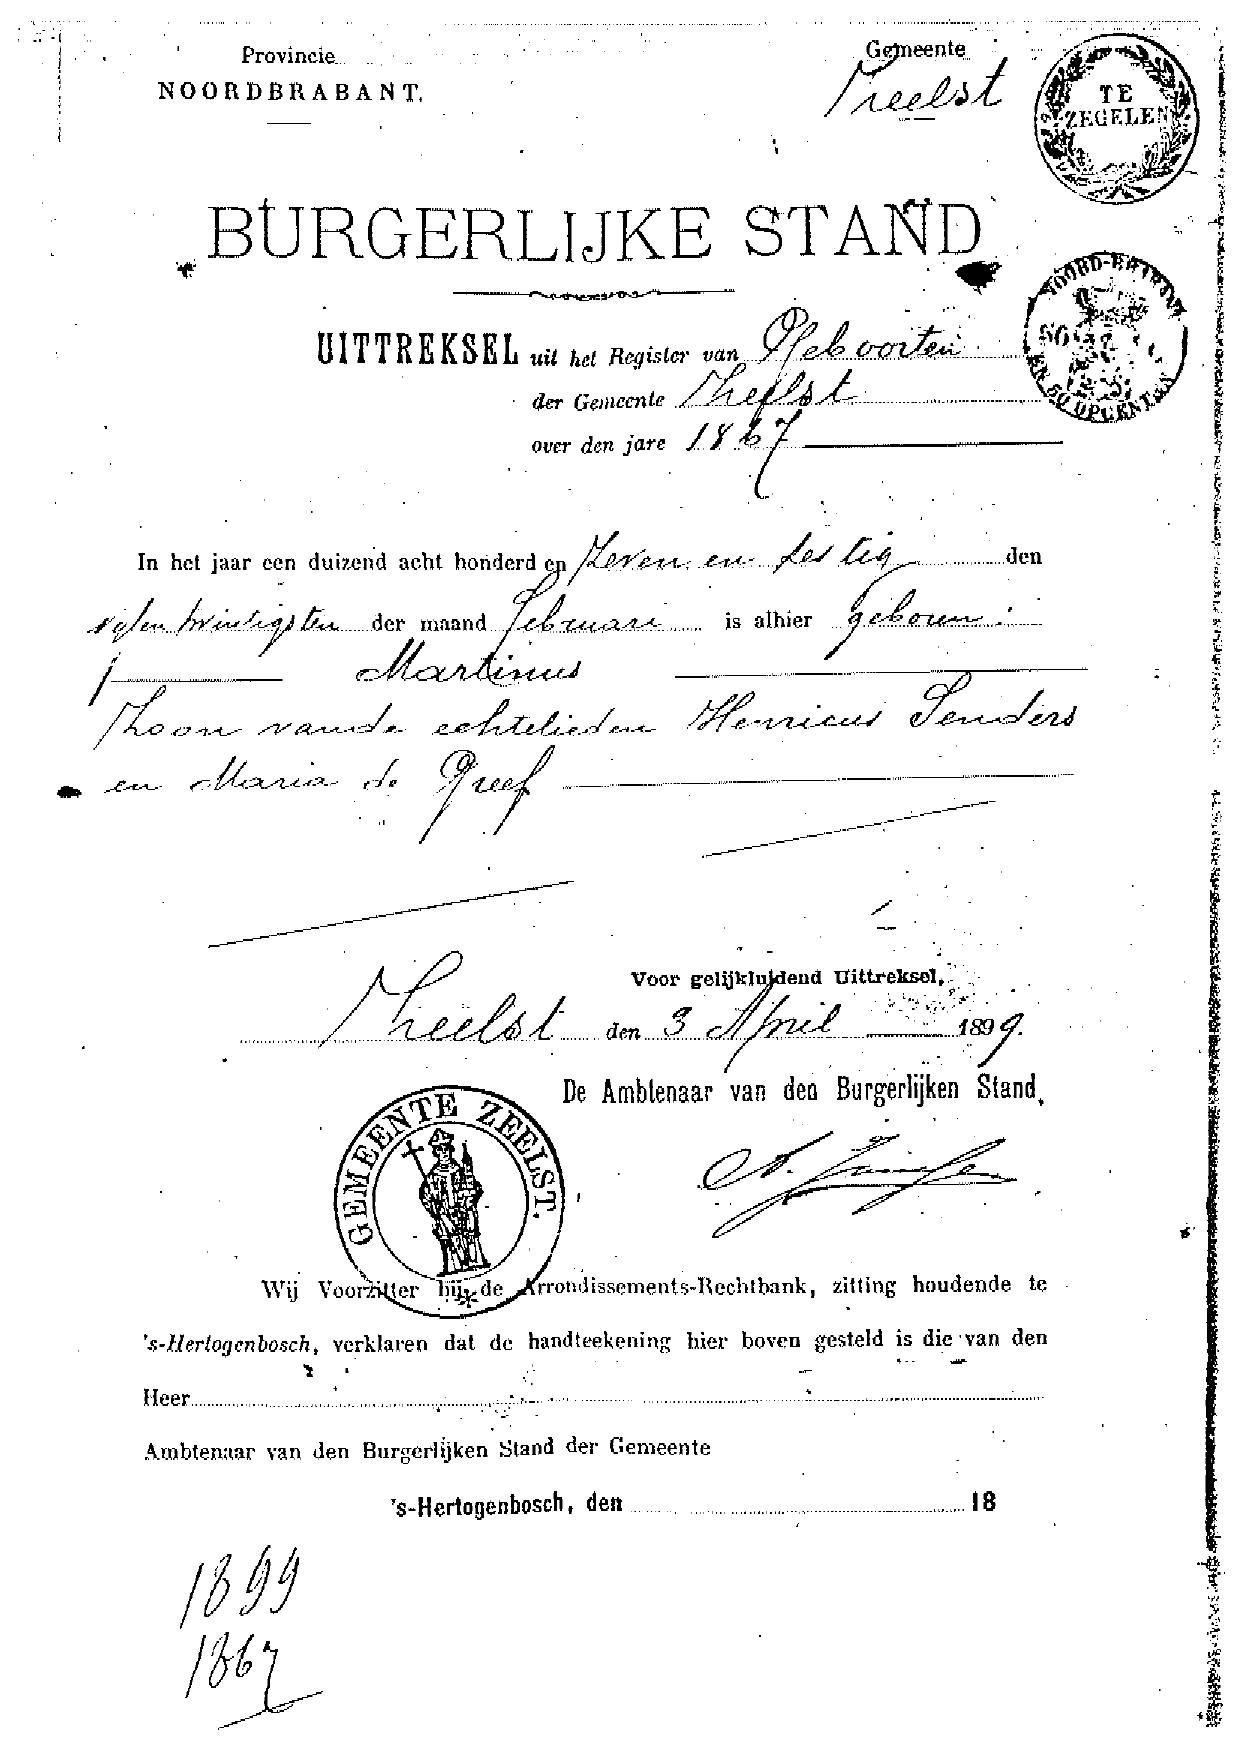 Provincie
NOORDBRABANT.
Gemeente
Zeelst
TE
ZEGELEN
BURGERLIJKE STAND
NOORD-BRABANT
50
EN 50 OPCENTEN
UITTREKSEL uit het Register van Geboorten
der Gemeente Zeelst
over den jare 1867
In het jaar een duizend acht honderd en Zeven en sestig den
vyfentwintigsten der maand Februari is alhier geboren:
Martinus
Zoon van de echtelieden Henricus Senders
en Maria de Greef
Voor gelijkluidend Uittreksel,
Zeelst den 3 April 1899.
De Ambtenaar van den Burgerlijken Stand,
GEMEENTE ZEELST.
Wij Voorzitter bij de Arrondissements-Rechtbank, zitting houdende te
's-Hertogenbosch, verklaren dat de handteekening hier boven gesteld is die van den
Heer
Ambtenaar van den Burgerlijken Stand der Gemeente
's-Hertogenbosch, den 18
1899
1867